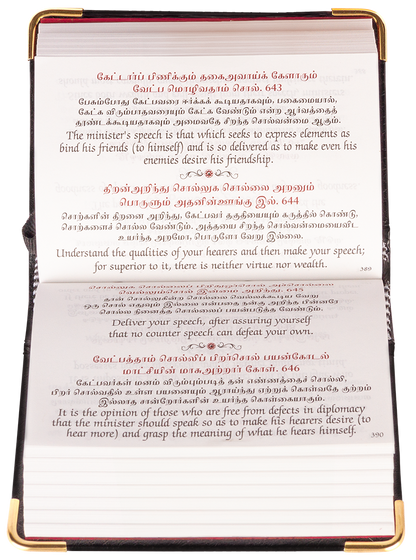 கேட்டார்ப் பிணிக்கும் தகைஅவாய்க் கேளாரும்
வேட்ப மொழிவதாம் சொல். 643
பேசும்போது கேட்பவரை ஈர்க்கக் கூடியதாகவும், பகைமையால்,
கேட்க விரும்பாதவரையும் கேட்க வேண்டும் என்ற ஆர்வத்தைத்
தூண்டக்கூடியதாகவும் அமைவதே சிறந்த சொல்வன்மை ஆகும்.
The minister's speech is that which seeks to express elements as
bind his friends (to himself) and is so delivered as to make even his
enemies desire his friendship.
திறன்அறிந்து சொல்லுக சொல்லை அறனும்
பொருளும் அதனின்ஊங்கு இல். 644
சொற்களின் திறனை அறிந்து, கேட்பவர் தகுதியையும் கருத்தில் கொண்டு,
சொற்களைச் சொல்ல வேண்டும். அத்தயை சிறந்த சொல்வன்மையைவிட
உயர்ந்த அறமோ, பொருளோ வேறு இல்லை.
Understand the qualities of your hearers and then make your speech;
for superior to it, there is neither virtue nor wealth.
389
சொல்லுக சொல்லைப் பிறிதோர்சொல் அச்சொல்லை
வெல்லும்சொல் இன்மை அறிந்து. 645
தான் சொல்லுகின்ற சொல்லை வெல்லக்கூடிய வேறு
ஒரு சொல் எதுவும் இல்லை என்பதை நன்கு அறிந்த பின்னரே
சொல்ல நினைத்த சொல்லைப் பயன்படுத்த வேண்டும்.
Deliver your speech, after assuring yourself
that no counter speech can defeat your own.
வேட்பத்தாம் சொல்லிப் பிறர்சொல் பயன்கோடல்
மாட்சியின் மாசுஅற்றார் கோள். 646
கேட்பவர்கள் மனம் விரும்பும்படித் தன் எண்ணத்தைச் சொல்லி,
பிறர் சொல்வதில் உள்ள பயனையும் ஆராய்ந்து ஏற்றுக் கொள்வதே குற்றம்
இல்லாத சான்றோர்களின் உயர்ந்த கொள்கையாகும்.
It is the opinion of those who are free from defects in diplomacy
that the minister should speak so as to make his hearers desire (to
hear more) and grasp the meaning of what he hears himself.
390